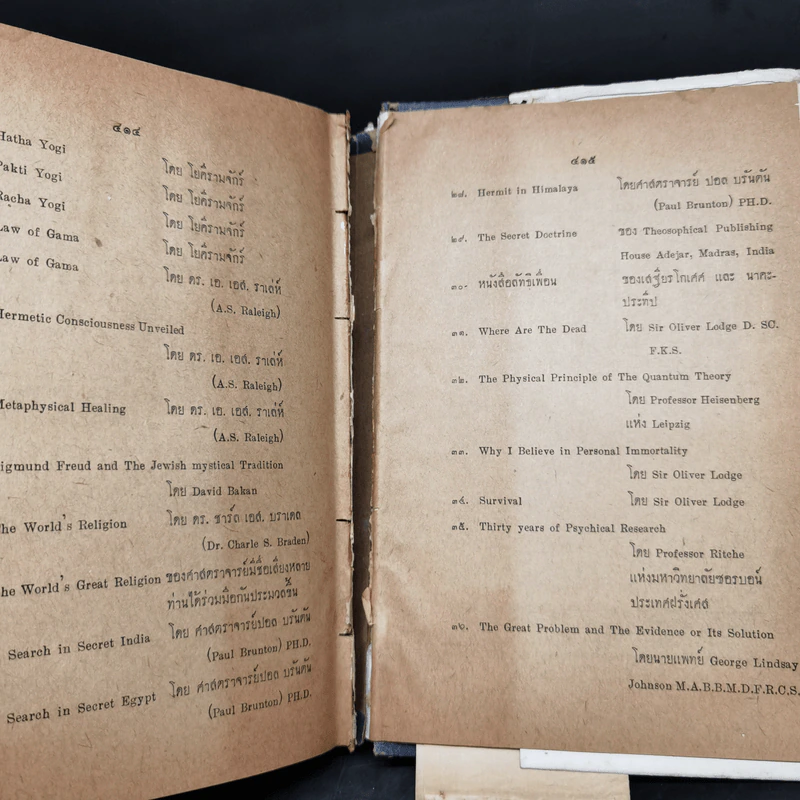 ๔๑๔
Hatha Yogi โดย โยคีรามจักร์
Pakti Yogi โดย โยคีรามจักร์
Racha Yogi โดย โยคีรามจักร์
Law of Gama โดย โยคีรามจักร์
Law of Gama โดย ดร. เอ. เอส. ราเล่ห์
(A.S. Raleigh)
Hermetic Consciousness Unveiled
โดย ดร. เอ. เอส. ราเล่ห์
(A.S. Raleigh)
Metaphysical Healing โดย ดร. เอ. เอส. ราเล่ห์
(A.S. Raleigh)
igmund Freud and The Jewish mystical Tradition
โดย David Bakan
he World's Religion โดย ดร. ชาร์ล เอส. บราเดล
(Dr. Charle S. Braden)
he World's Great Religion ของศาสตราจารย์มีชื่อเสียงหลาย
ท่านได้ร่วมมือกันประมวลขึ้น
Search in Secret India โดย ศาสตราจารย์ปอล บรันตัน
(Paul Brunton) PH.D.
Search in Secret Egypt โดย ศาสตราจารย์ปอล บรันตัน
(Paul Brunton) PH.D.
๔๑๕
๒๘. Hermit in Himalaya โดยศาสตราจารย์ ปอล บรันตัน
(Paul Brunton) PH.D.
๒๙. The Secret Doctrine ของ Theosophical Publishing
House Adejar, Madras, India
๓๐. หนังสือลัทธิเพื่อน ของเสฐียรโกเศศ และ นาคะ-
ประทีป
๓๑. Where Are The Dead โดย Sir Oliver Lodge D. SC.
F.K.S.
๓๒. The Physical Principle of The Quantum Theory
โดย Professor Heisenberg
แห่ง Leipzig
๓๓. Why I Believe in Personal Immortality
โดย Sir Oliver Lodge
๓๔. Survival โดย Sir Oliver Lodge
๓๕. Thirty years of Psychical Research
โดย Professor Ritche
แห่งมหาวิทยาลัยซอรบอน์
ประเทศฝรั่งเศส
๓๖. The Great Problem and The Evidence or Its Solution
โดยนายแพทย์ George Lindsay
Johnson M.A.B.B.M.D.F.R.C.S.